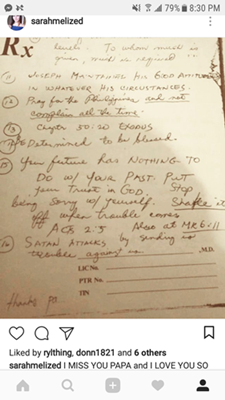 79% 8:30 PM
sarahmelized
Rx
level. To whom much is
given, much is required
11 JOSEPH MAINTAINED HIS GOD
IN WHATEVER HIS CIRCUMSTANCES.
12 Pray for the Philippines and not
complain all the time.
13 50:20 EXODUS
14 Determined to be blessed.
15 Your future HAS NOTHING TO
DO W/ YOUR PAST. PUT
your TRUST in GOD. Stop
being sorry w/ yourself. Shake it
off when trouble comes
2:5 Also at
16 SATAN ATTACKS by sending us
trouble against us
, M.D.
LIC No.
PTR No.
TIN
thanks po
Liked by rylthing, donn1821 and 6 others
sarahmelized I MISS YOU PAPA and I LOVE YOU SO